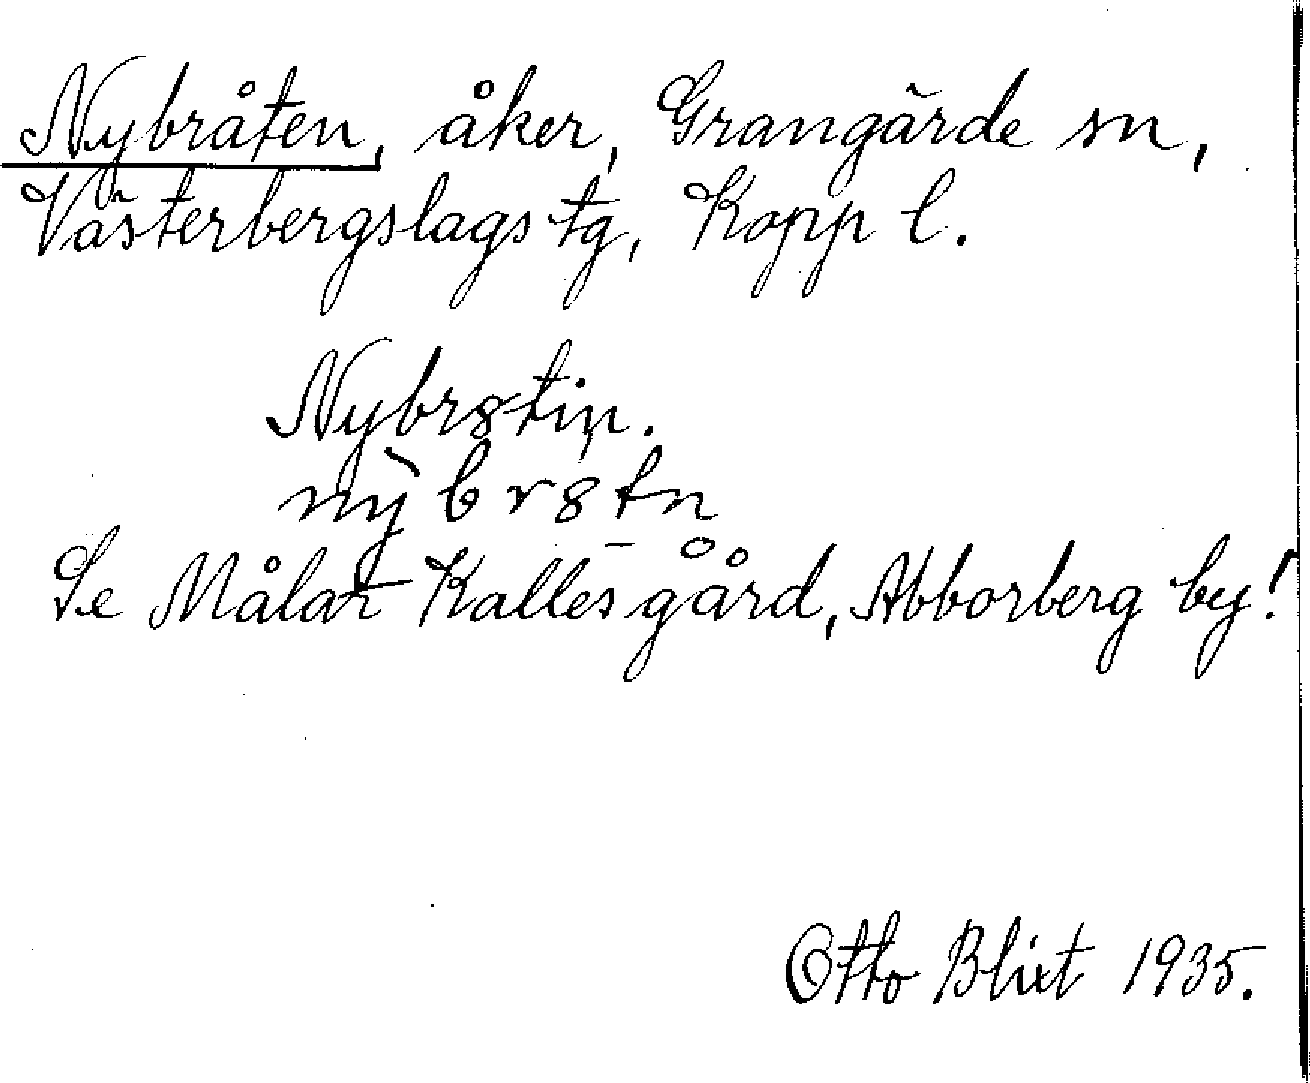 Nybråten, åker, Grangärde sn,
Västerbergslags tg, Kopp l.
Nybr8tin.
nỳbr8tn
Se Målar Kalles gård, Abborberg by!
Otto Blixt 1935.